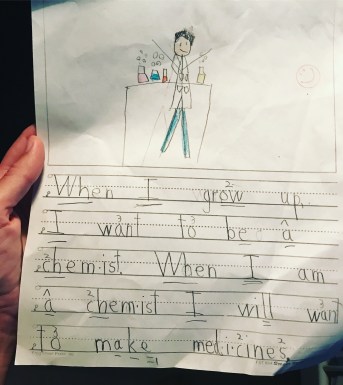 When I grow up,
I want to be a
chemist. When I am
a chemist I will want
to make medicines.